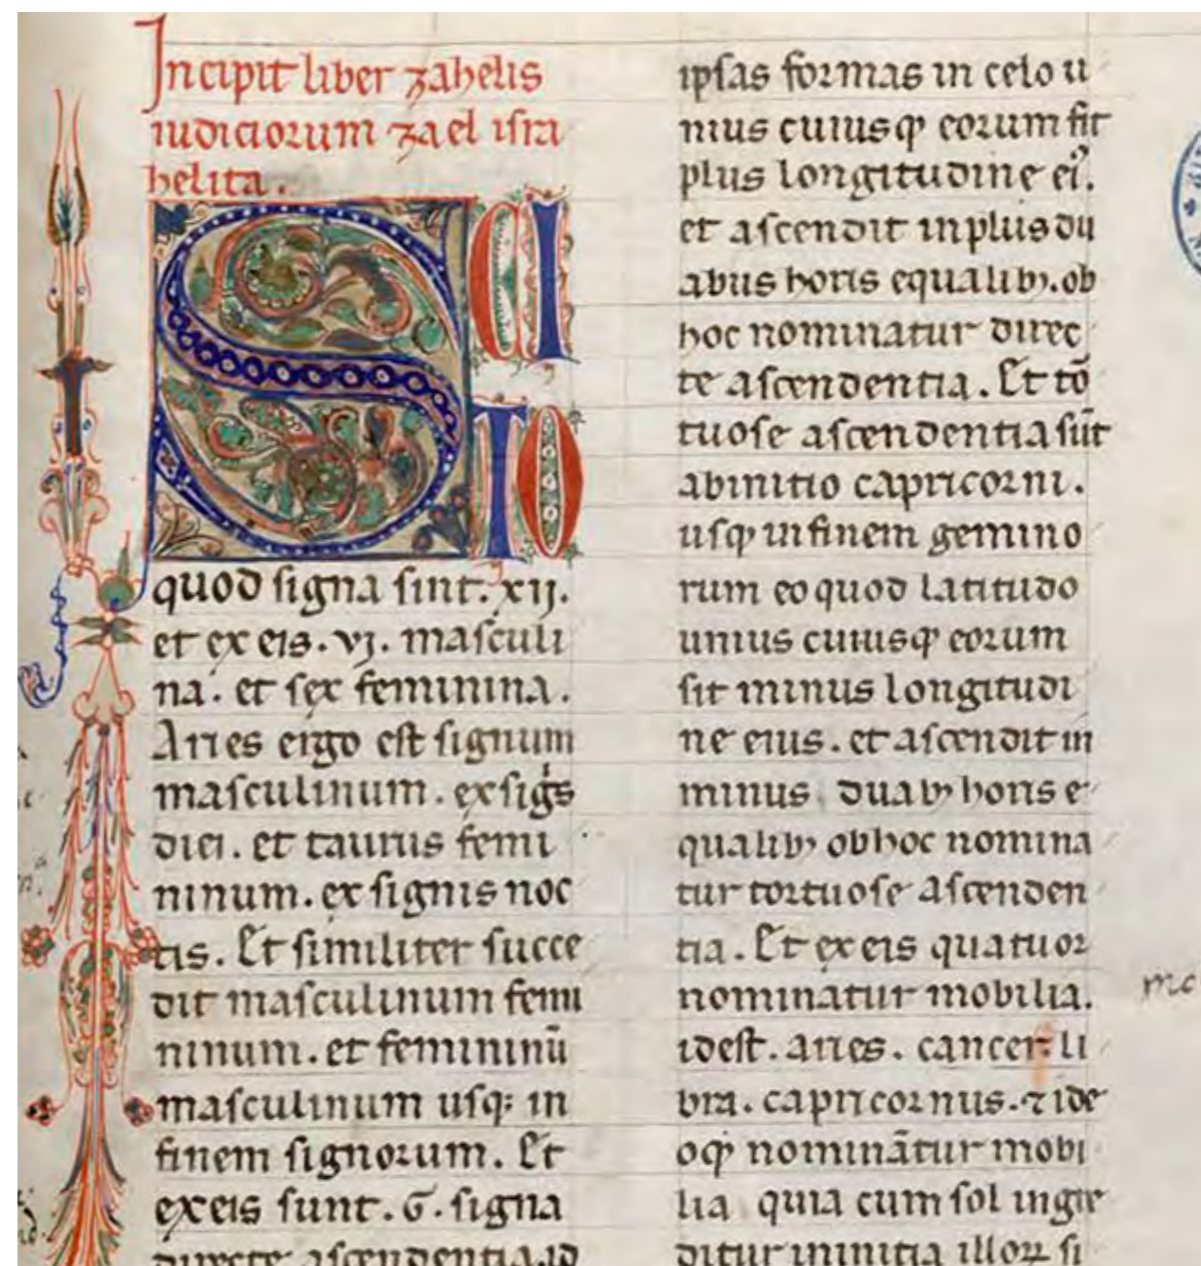 Incipit liber zahelis
iudiciorum zael isra
helita.
SCI
TO
quod signa sint. xij.
et ex eis. vj. masculi
na. et sex feminina.
Aries ergo est signum
masculinum. ex sigs
diei. et taurus femi
ninum. ex signis noc
tis. Et similiter succe
dit masculinum femi
ninum. et femininū
masculinum usq; in
finem signorum. Et
ex eis sunt. 6. signa
directe ascendentia. id
ipsas formas in celo u
nius cuiusqȝ eorum sit
plus longitudine eiꝰ.
et ascendit in plus du
abus horis equalibȝ. ob
hoc nominatur direc
te ascendentia. Et to᷑
tuose ascendentia su᷑t
ab initio capricorni.
usqȝ in finem gemino
rum eo quod latitudo
unius cuiusqȝ eorum
sit minus longitudi
ne eius. et ascendit in
minus duabȝ horis e
qualibȝ ob hoc nomina
tur tortuose ascenden
tia. Et ex eis quatuor
nominatur mobilia.
id est. aries. cancer. li
bra. capricornus. ⁊ ide
oqȝ nominātur mobi
lia quia cum sol ingre
ditur in initia illoꝝ si